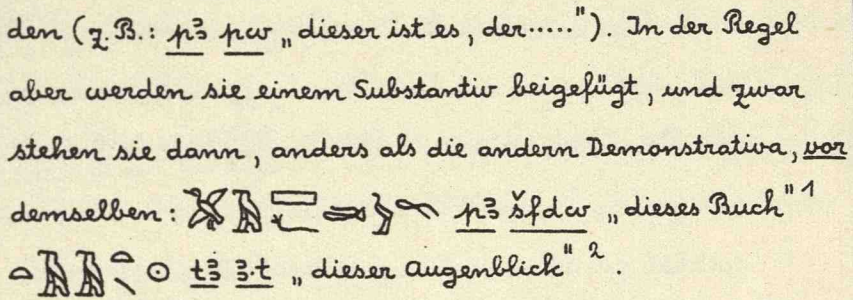 den (z.B.: pꜣ pw „dieser ist es, der.....“). In der Regel
aber werden sie einem Substantiv beigefügt, und zwar
stehen sie dann, anders als die andern Demonstrativa, vor
demselben: 𓅮𓄿𓈙𓆑𓂧𓅱 pꜣ šfdw „dieses Buch“ 1
𓏏𓄿𓄿𓏏𓇳 tꜣ ꜣ.t „dieser Augenblick“ 2.